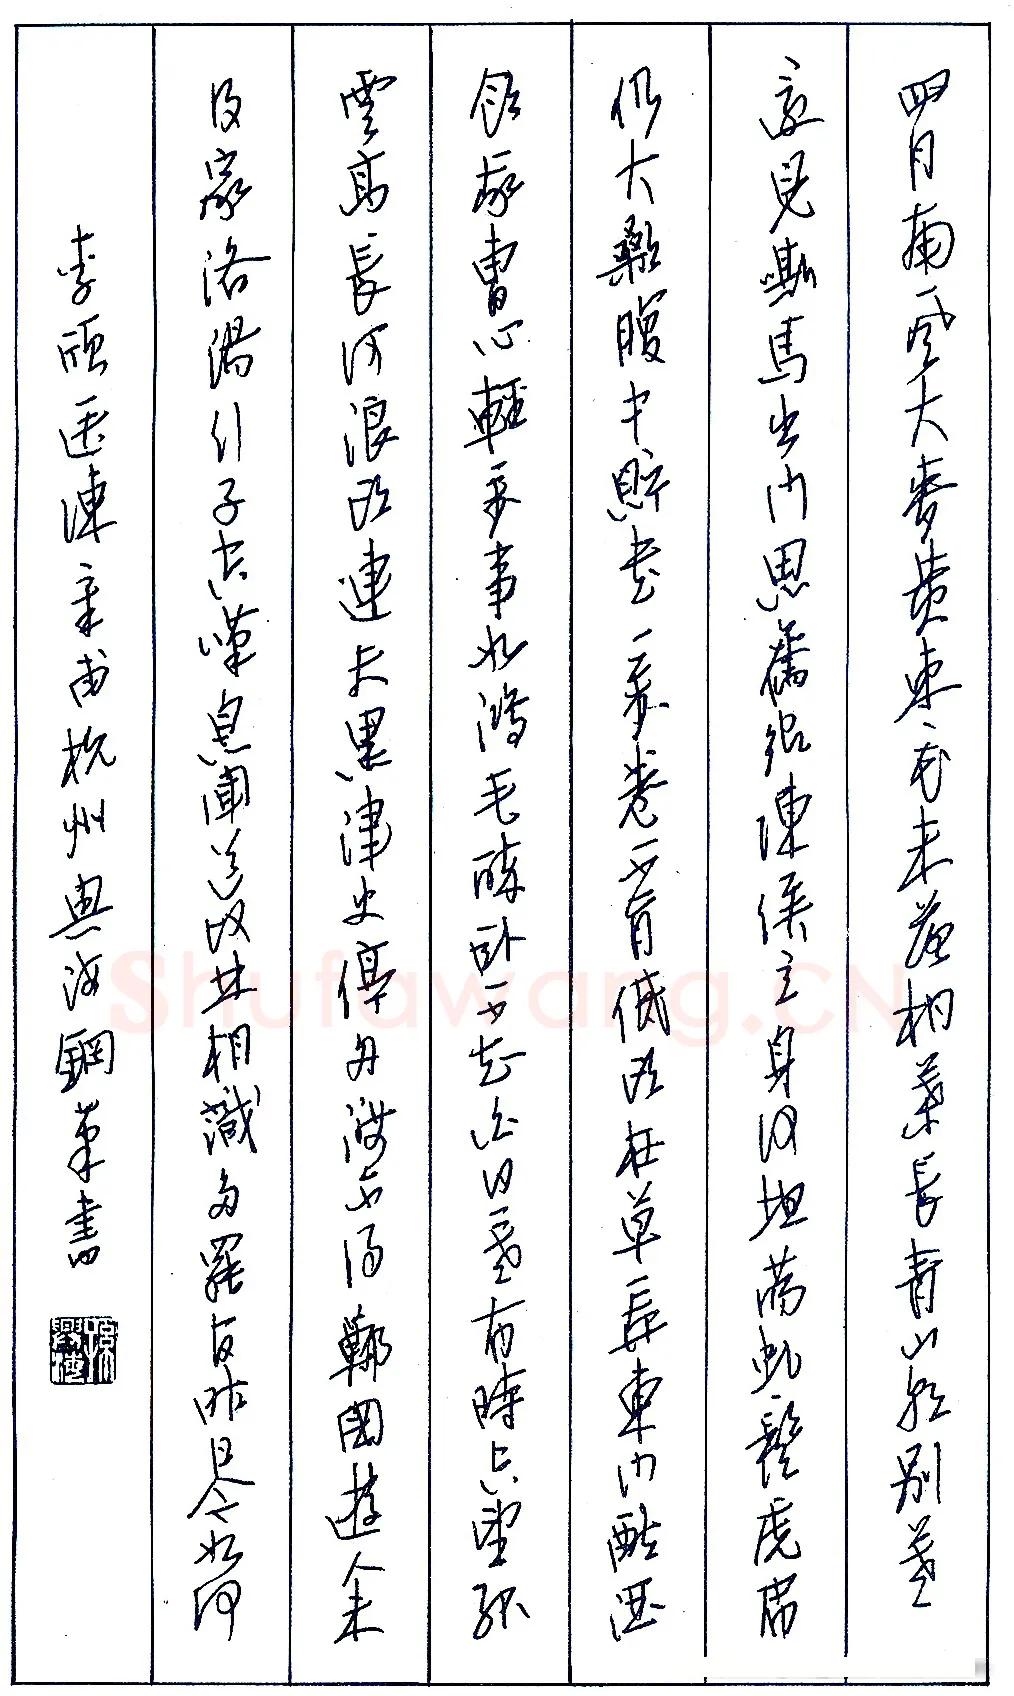 四月南風大麥黃棗花未落桐葉長青山朝別暮
還見嘶馬出門思舊鄉陳侯立身何坦蕩虬鬚虎眉
仍大顙腹中貯書一萬卷不肯低頭在草莽東門酤酒
飲我曹心輕萬事如鴻毛醉卧不知白日暮有時空望孤
雲高長河浪頭連天黑津吏停舟渡不得鄭國遊人未
及家洛陽行子空嘆息聞道故林相識多罷官昨日今如何
李頎送陳章甫杭州興海鋼筆書
Shufawang.CN